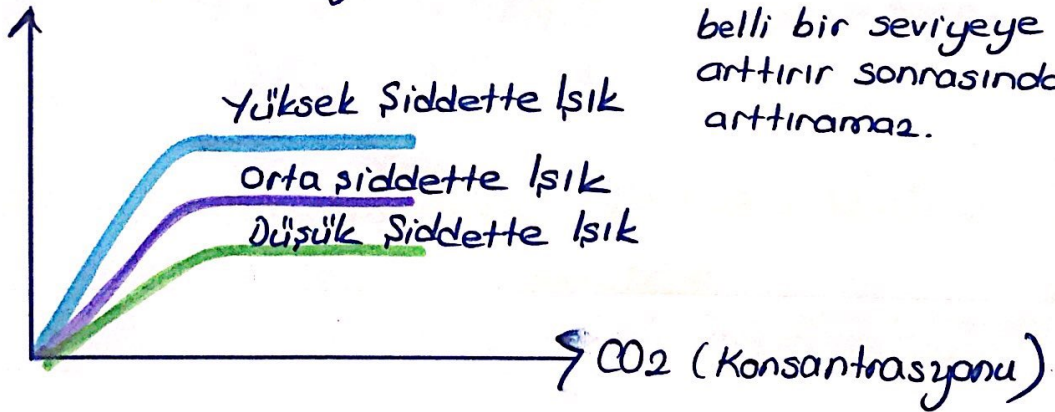 belli bir seviyeye
arttırır sonrasında
arttıramaz.
Yüksek Şiddette Işık
Orta şiddette Işık
Düşük Şiddette Işık
CO2 (Konsantrasyonu)